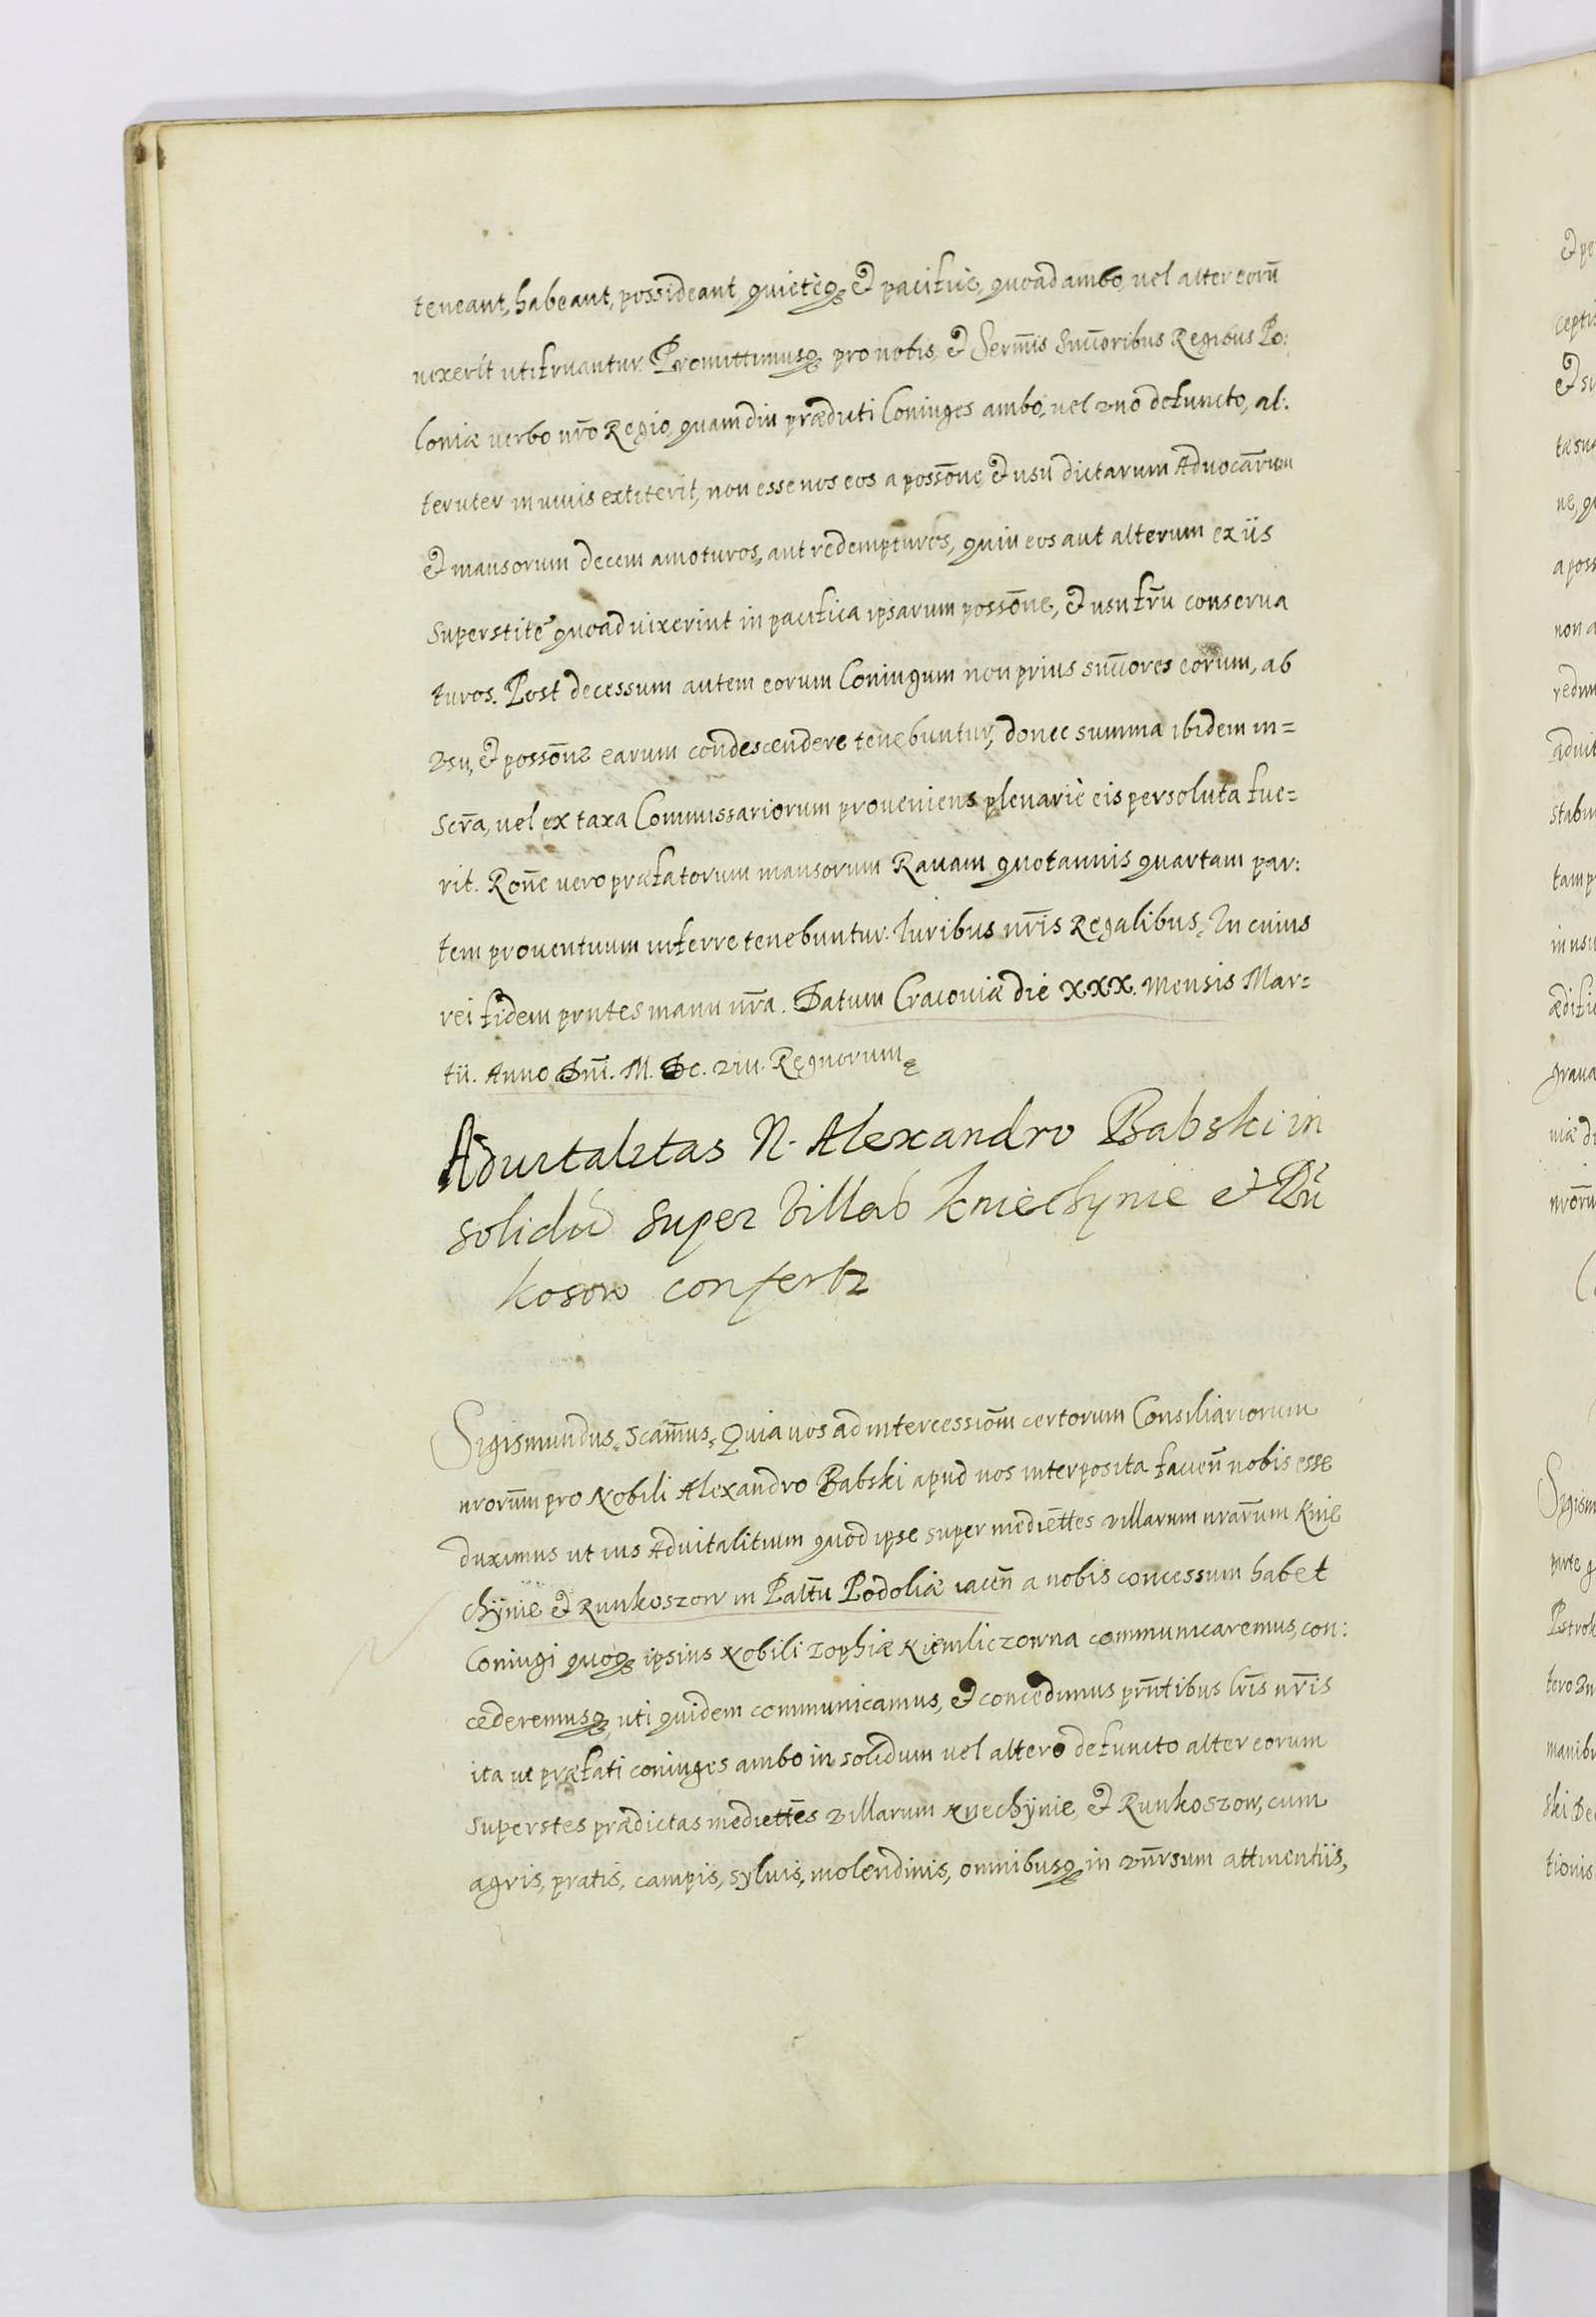 teneant, habeant, possideant quietèq₃ & pacificè, quoad ambo, vel alter eorū
vixerit utifruantur. Promittimusq₃ pro nobis & Serm̄is Succ̄oribus Regibus Po:
loniæ verbo nr̄o Regio, quamdiu prædicti Coniuges ambo, vel vno defuncto, al:
teruter in vivis extiterit, non esse nos eos a possōne & usu dictarum Advocār̄um
& mansorum decem amoturos, aut redempturos, quin eos aut alterum ex iis
superstitē quoad vixerint in pacifica ipsarum possōne, & usufr̄u conserva
turos. Post decessum autem eorum Coniugum non prius succ̄ores eorum, ab
vsu, & possōne earum condescendere tenebuntur, donec summa ibidem in=
scr̄a, vel ex taxa Commissariorum proveniens plenariè eis persoluta fue=
rit. Rōne vero præfatorum mansorum Ravam quotannis quartam par:
tem proventuum inferre tenebuntur. Iuribus nr̄is Regalibus. In cuius
rei fidem prntes manu nr̄a. Datum Cracoviæ die XXX. Mensis Mar=
tii. Anno Dn̄i. M. Dc. xiv. Regnorum
Aduitalitas N. Alexandro Babski in
solidū super villas Kniechynie & Rū
kosow confertr
Sigismundus. Scām̄us. Quia nos ad intercessiōm certorum Consiliariorum
nrorūm pro Nobili Alexandro Babski apud nos interposita facien̄ nobis esse
duximus ut ius Advitalitium quod ipse super mediēttes villarum nrar̄um Knie
chÿnie & Runkoszow in Palt̄u Podoliæ iacen̄ a nobis concessum habet
Coniugi quoq₃ ipsius Nobili Zophiæ Kiemliczowna communicaremus, con:
cederemusq₃, uti quidem communicamus, & concedimus prn̄tibus lr̄is nr̄is
ita ut præfati coniuges ambo in solidum vel altero defuncto alter eorum
superstes prædictas mediettēs villarum Kniechÿnie, & Runkoszow, cum
agris, pratis, campis, sylvis, molendinis, omnibusq₃ in vn̄rsum attinentiis,